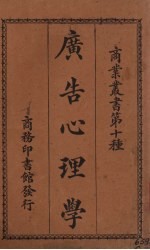 商業叢書第十種
廣告心理學
商務印書館發行